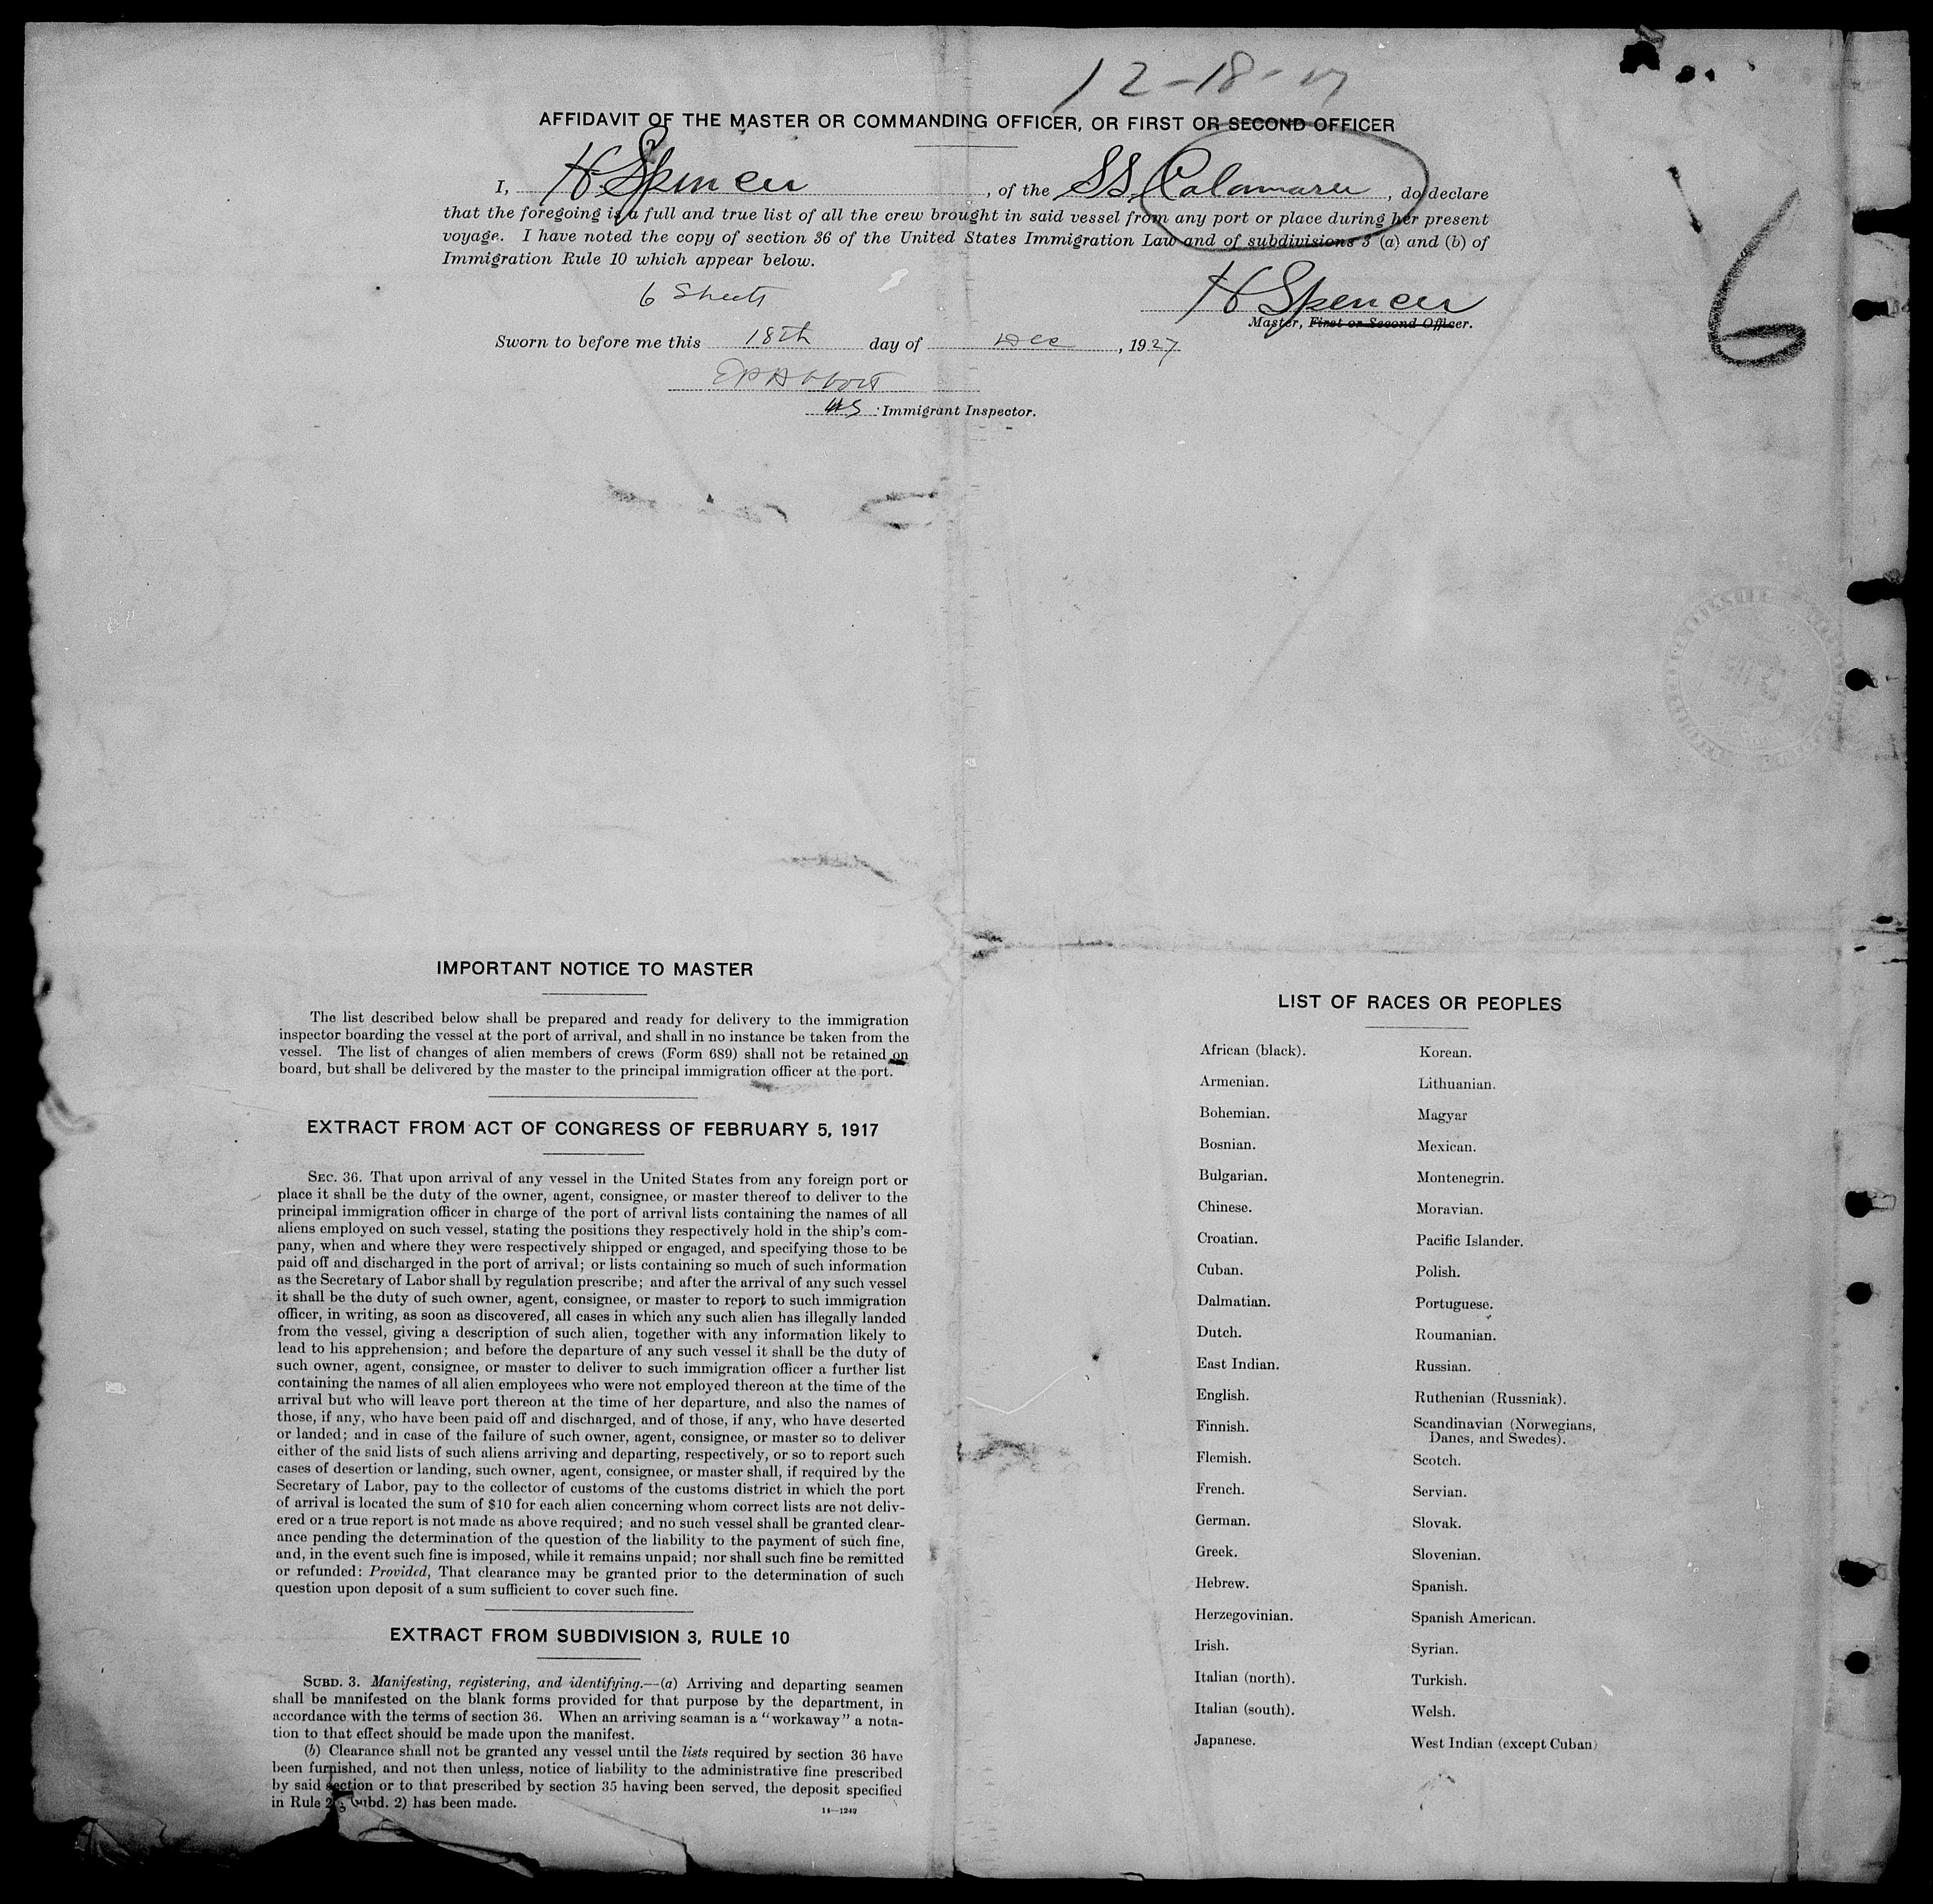 12-18-27
AFFIDAVIT OF THE MASTER OR COMMANDING OFFICER, OR FIRST OR SECOND OFFICER
I, H Spencer, of the SS. Calamares, do declare
that the foregoing is a full and true list of all the crew brought in said vessel from any port or place during her present
voyage. I have noted the copy of section 36 of the United States Immigration Law and of subdivisions 3 (a) and (b) of
Immigration Rule 10 which appear below.
6 Sheets
H Spencer
Master, First or Second Officer.
6
Sworn to before me this 18th day of Dec, 1927
E P Abbott
US Immigrant Inspector.
IMPORTANT NOTICE TO MASTER
The list described below shall be prepared and ready for delivery to the immigration
inspector boarding the vessel at the port of arrival, and shall in no instance be taken from the
vessel. The list of changes of alien members of crews (Form 689) shall not be retained on
board, but shall be delivered by the master to the principal immigration officer at the port.
EXTRACT FROM ACT OF CONGRESS OF FEBRUARY 5, 1917
SEC. 36. That upon arrival of any vessel in the United States from any foreign port or
place it shall be the duty of the owner, agent, consignee, or master thereof to deliver to the
principal immigration officer in charge of the port of arrival lists containing the names of all
aliens employed on such vessel, stating the positions they respectively hold in the ship's com-
pany, when and where they were respectively shipped or engaged, and specifying those to be
paid off and discharged in the port of arrival; or lists containing so much of such information
as the Secretary of Labor shall by regulation prescribe; and after the arrival of any such vessel
it shall be the duty of such owner, agent, consignee, or master to report to such immigration
officer, in writing, as soon as discovered, all cases in which any such alien has illegally landed
from the vessel, giving a description of such alien, together with any information likely to
lead to his apprehension; and before the departure of any such vessel it shall be the duty of
such owner, agent, consignee, or master to deliver to such immigration officer a further list
containing the names of all alien employees who were not employed thereon at the time of the
arrival but who will leave port thereon at the time of her departure, and also the names of
those, if any, who have been paid off and discharged, and of those, if any, who have deserted
or landed; and in case of the failure of such owner, agent, consignee, or master so to deliver
either of the said lists of such aliens arriving and departing, respectively, or so to report such
cases of desertion or landing, such owner, agent, consignee, or master shall, if required by the
Secretary of Labor, pay to the collector of customs of the customs district in which the port
of arrival is located the sum of $10 for each alien concerning whom correct lists are not deliv-
ered or a true report is not made as above required; and no such vessel shall be granted clear-
ance pending the determination of the question of the liability to the payment of such fine,
and, in the event such fine is imposed, while it remains unpaid; nor shall such fine be remitted
or refunded: Provided, That clearance may be granted prior to the determination of such
question upon deposit of a sum sufficient to cover such fine.
EXTRACT FROM SUBDIVISION 3, RULE 10
SUBD. 3. Manifesting, registering, and identifying.—(a) Arriving and departing seamen
shall be manifested on the blank forms provided for that purpose by the department, in
accordance with the terms of section 36. When an arriving seaman is a "workaway" a nota-
tion to that effect should be made upon the manifest.
(b) Clearance shall not be granted any vessel until the lists required by section 36 have
been furnished, and not then unless, notice of liability to the administrative fine prescribed
by said section or to that prescribed by section 35 having been served, the deposit specified
in Rule (subd. 2) has been made.
14—1240
LIST OF RACES OR PEOPLES
African (black).
Armenian.
Bohemian.
Bosnian.
Bulgarian.
Chinese.
Croatian.
Cuban.
Dalmatian.
Dutch.
East Indian.
English.
Finnish.
Flemish.
French.
German.
Greek.
Hebrew.
Herzegovinian.
Irish.
Italian (north).
Italian (south).
Japanese.
Korean.
Lithuanian.
Magyar
Mexican.
Montenegrin.
Moravian.
Pacific Islander.
Polish.
Portuguese.
Roumanian.
Russian.
Ruthenian (Russniak).
Scandinavian (Norwegians,
Danes, and Swedes).
Scotch.
Servian.
Slovak.
Slovenian.
Spanish.
Spanish American.
Syrian.
Turkish.
Welsh.
West Indian (except Cuban)